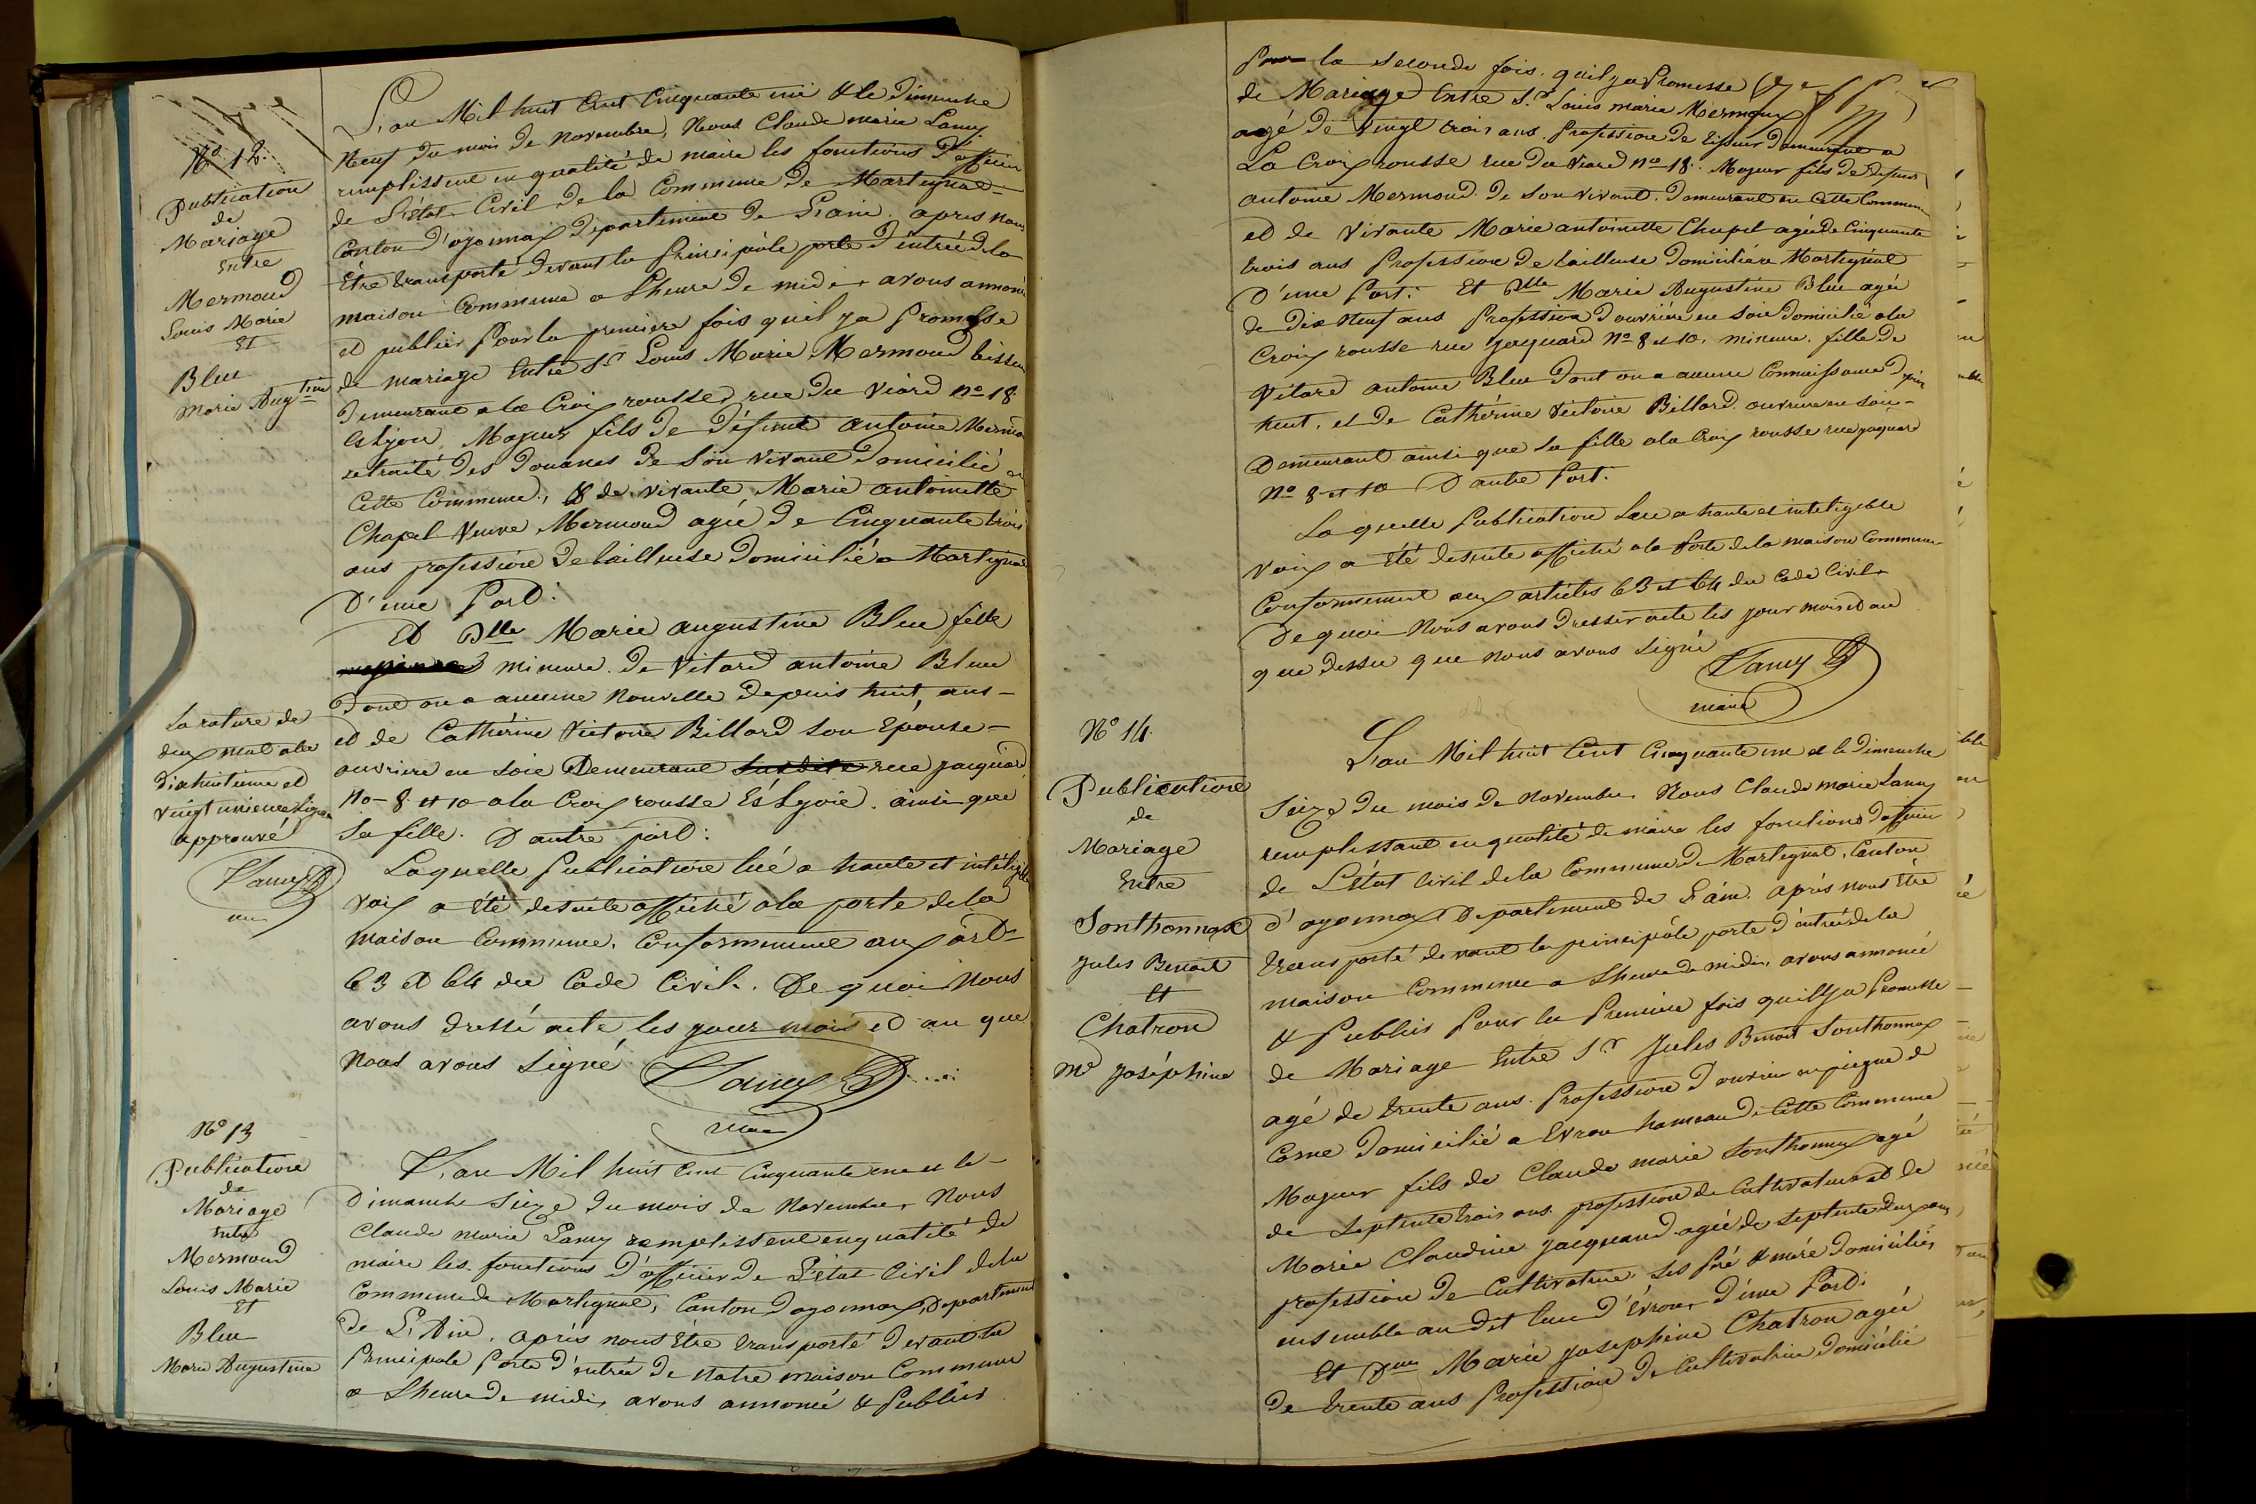 N° 12.
Publication
de
Mariage
Entre
Mermoud
Louis Marie
Et
Blue
Marie Augtine
L'an Mil huit Cent Cinquante un & le Dimanche
Neuf du mois de novembre, Nous Claude marie Lamy
remplissent en qualité de maire les fonctions d'officier
de L'état Civil de la Commune de Martignat
Canton d'oyonnax Département de L'ain. apres nous
Être transporté devant la principale porte d'entrée de la
maison Commune a L'heure de midi, avons annoncé
et publier Pour la premiere fois qu'il ya Promesse
de mariage Entre Sr Louis Marie Mermoud tisseur
Demeurant a la Croix rousse, rue du Viard n° 18.
Es Lyon, Majeur fils de Défunt Antoine Mermoud
retraité des Douanes De Son vivant Domicilié en
Cette Commune, & de vivante Marie Antoinette
Chapel Veuve Mermoud agée de Cinquante trois
ans profession De tailleuse Domicilié a Martignat
D'une Part:
Et Dlle Marie augustine Blue fille
mineure de Vitard antoine Blue
Dont on a aucune nouvelle depuis huit ans
et de Cathérine Victoire Billard son Epouse
ouvriere en Soie Demeurant susdite rue jaquard
No 8 et 10 a la Croix rousse Es Lyon. ainsi que
Sa fille. D'autre part:
Laquelle Publication lue a haute et intéligible
voix a été desuite affiché a la porte de la
maison Commune. Conformement aux art
63 et 64 du Code Civil. De quoi Nous
avons dressé acte les jour mois et an que
Nous avons Signé
Lamy
maire
La rature de
deux mot a la
Dixhuitieme et
vingt unieme ligne
approuvé
Lamy
N° 13
Publication
de
Mariage
Entre
Mermoud
Louis Marie
Et
Blue
Marie Augustine
L'an Mil huit Cent Cinquante un et le
Dimanche Seize du mois de Novembre, Nous
Claude marie Lamy remplissent en qualité de
maire les fonctions d'officier de L'état Civil de la
Commune de Martignat, Canton d'oyonnax, Departement
de L'Ain. après nous Être transporté devant la
Principale Porte d'entrée de Notre maison Commune
a L'heure de midi, avons annoncé & Publier
Pour la seconde fois. qu'il ya Promesse
de Mariage Entre Sr Louis marie Mermoud
agé de Vingt trois ans. Profession de tisseur demeurant a
La Croix rousse rue du Viard n° 18. Majeur fils de Defunt
antoine Mermoud de Son vivant Demeurant en Cette Commune
et de Vivante Marie antoinette Chapel agée de Cinquante
trois ans Profession De tailleuse Domiciliée a Martignat
D'une Part: Et Dlle Marie Augustine Blue agée
de Dix Neuf ans Profession d'ouvrière en Soie Domicilié a la
Croix rousse rue jaquard N° 8 et 10, mineure. fille De
Vitard antoine Blue Dont on a aucune Connaissance Depuis
huit, et De Cathérine Victoire Billard ouvriere en Soie
Demeurant ainsi que Sa fille a la Croix rousse rue jaquard
N° 8 et 10 D'autre Part.
La quelle Publication Lue a haute et inteligible
Voix a Eté desuite affiché a la Porte de la maison Commune
Conformement aux articles 63 et 64 du Code Civil.
De quoi Nous avons Dresser acte les jour mois et an
que dessus que nous avons Signé
Lamy
maire
N° 14.
Publication
de
Mariage
Entre
Sonthonnax
Jules Benoit
Et
Chatron
Me Joséphine
L'an Mil huit Cent Cinquante un et le Dimanche
Seize du mois de Novembre Nous Claude marie Lamy
remplissant en qualité de maire les fonctions d'officier
de L'état Civil de la Commune de Martignat, Canton
d'oyonnax Departement de L'ain. Après nous Etre
transporté devant la principale porte d'entrée de la
maison Commune a L'heure de midi, avons annoncé
& Publier Pour la Premiere fois qu'il ya Promesse
de Mariage Entre Sr Jules Benoit Sonthonnax
agé de trente ans. Profession D'ouvrier en peigne de
Corne Domicilié a Evron hameau de Cette Commune
Majeur fils de Claude marie Sonthonnax agé
de Septente trois ans profession de Cultivateur et de
Marie Claudine Jacquand agée de Septente deux ans
profession De Cultivatrice. Ses Pére & mére Domiciliés
ensemble au dit lieu d'Evron, D'une Part:
Et Dlle Marie Josephine Chatron agée
De trente ans Profession De Cultivatrice Domicilié